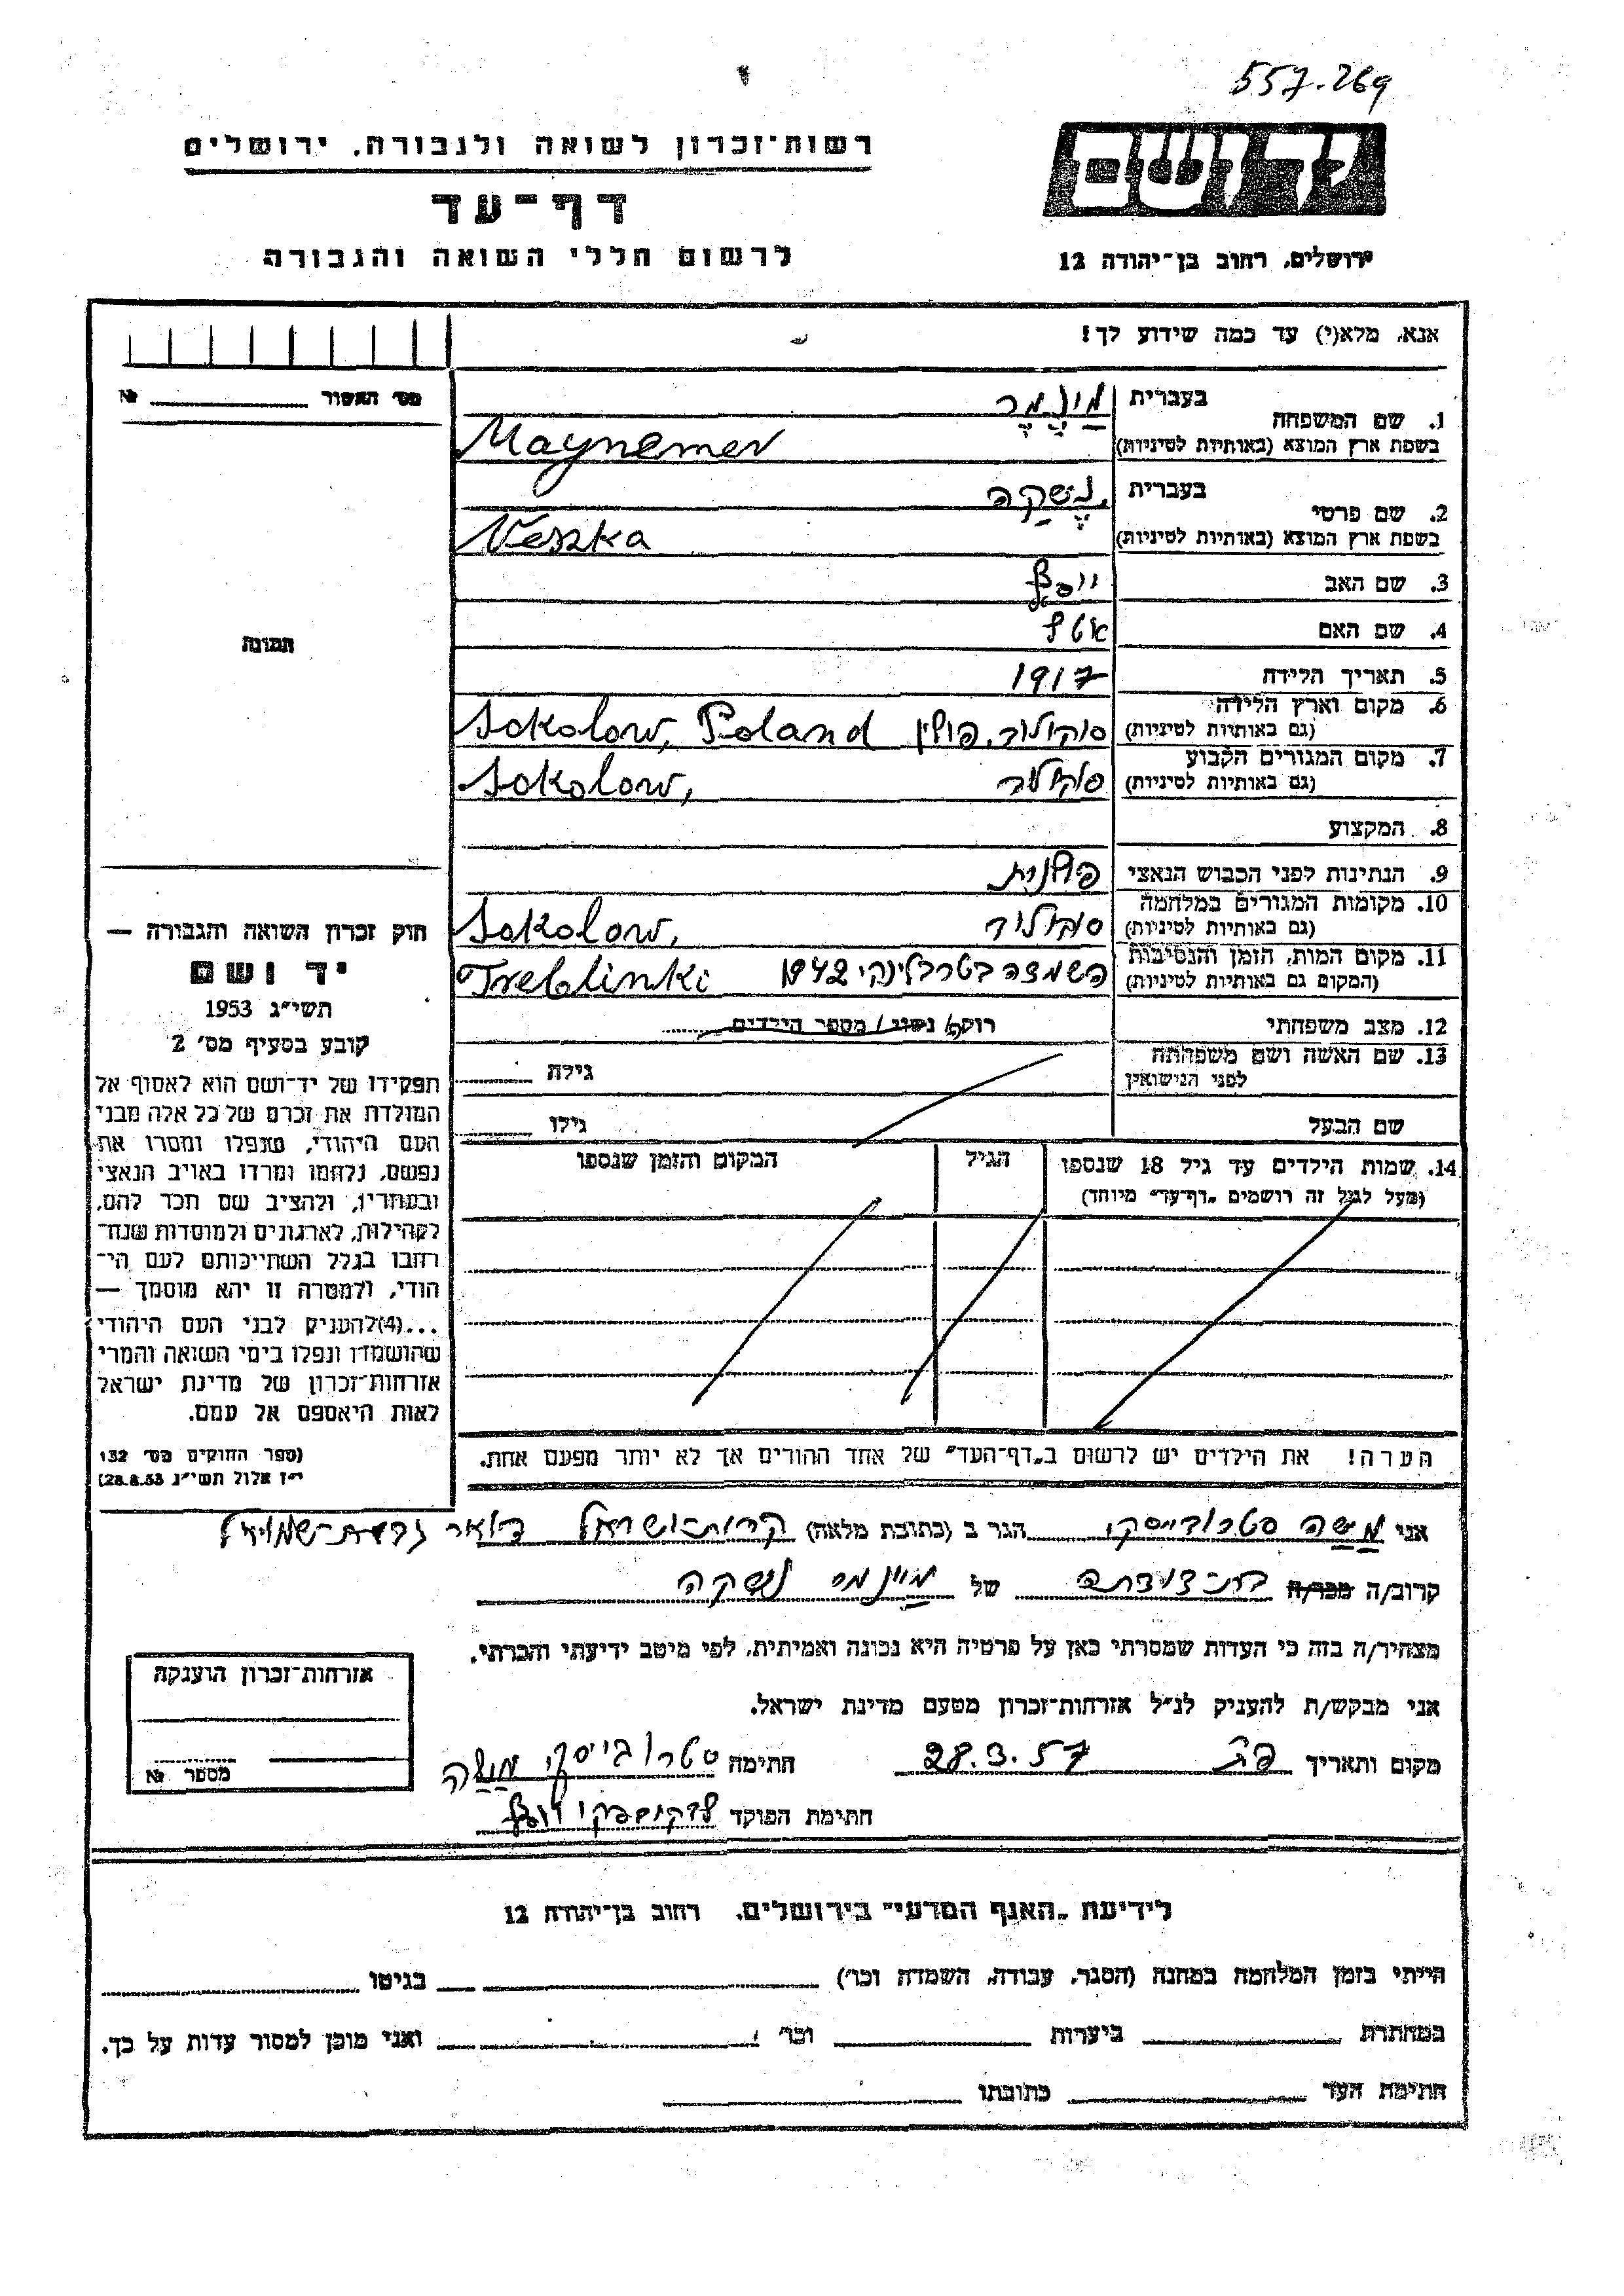 557.269
רשות־זכרון לשואה ולגבורה. ירושלים
דף־עד
לרשום חללי השואה והגבורה
יד ושם
ירושלים, רחוב בן־יהודה 12
אנא, מלא(י) עד כמה שידוע לך!
מס׳ האשור № 
1. שם המשפחה בעברית מינמר
בשפת ארץ המוצא (באותיות לטיניות) Maynemer
2. שם פרטי בעברית נשקה
בשפת ארץ המוצא (באותיות לטיניות) Neszka
3. שם האב יוסף
4. שם האם
5. תאריך הלידה 1917
6. מקום וארץ הלידה (גם באותיות לטיניות) סוקולוב, פולין Sokolow, Poland
7. מקום המגורים הקבוע (גם באותיות לטיניות) סוקולוב Sokolow,
8. המקצוע
9. הנתינות לפני הכבוש הנאצי פולנית
10. מקומות המגורים במלחמה (גם באותיות לטיניות) סוקולוב Sokolow,
11. מקום המות, הזמן והנסיבות (המקום גם באותיות לטיניות) השמדה בטרבלינקי 1942 Treblinki
12. מצב משפחתי רוק/ה נשוי / מספר הילדים
13. שם האשה ושם משפחתה לפני הנישואין גילה
שם הבעל גילו
14. שמות הילדים עד גיל 18 שנספו הגיל המקום והזמן שנספו
(מעל לגיל זה רושמים „דף־עד״ מיוחד)
הערה! את הילדים יש לרשום ב„דף־העד״ של אחד ההורים אך לא יותר מפעם אחת.
תמונה
חוק זכרון השואה והגבורה —
יד ושם
תשי״ג 1953
קובע בסעיף מס׳ 2
תפקידו של יד־ושם הוא לאסוף אל
המולדת את זכרם של כל אלה מבני
העם היהודי, שנפלו ומסרו את
נפשם, נלחמו ומרדו באויב הנאצי
ובעוזריו, ולהציב שם וזכר להם,
לקהילות, לארגונים ולמוסדות שנח־
רחבו בגלל השתייכותם לעם הי־
הודי, ולמטרה זו יהא מוסמך —
...(4)להעניק לבני העם היהודי
שהושמדו ונפלו בימי השואה והמרי
אזרחות־זכרון של מדינת ישראל
לאות היאספם אל עמם.
(ספר החוקים מס׳ 132
י״ז אלול תשי״ג 28.8.53)
אני משה הגר ב (כתובת מלאה) קרית־ישראל דואר גבעת־שמואל
קרוב/ה מכר/ה של מיינמר נשקה
מצהיר/ה בזה כי העדות שמסרתי כאן על פרטיה היא נכונה ואמיתית, לפי מיטב ידיעתי והכרתי.
אני מבקש/ת להעניק לנ״ל אזרחות־זכרון מטעם מדינת ישראל.
מקום ותאריך פת 28.3.57 חתימה משה
חתימת הפוקד
אזרחות־זכרון הוענקה
מספר №
לידיעת „האגף המדעי״ בירושלים. רחוב בן־יהודה 12
הייתי בזמן המלחמה במחנה (הסגר, עבודה, השמדה וכו׳) בגיטו
במחתרת ביערות וכו׳ ואני מוכן למסור עדות על כך.
חתימת העד כתובתו